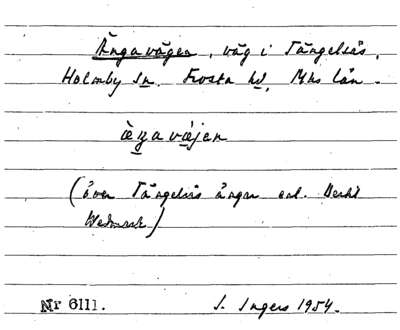 Ängavägen, väg i Tängelsås,
Holmby sn. Frosta hd, Mhs län.
äŋavä̱jen
(över Tängelsås ängar enl.
Nr 6111. I. Ingers 1954.